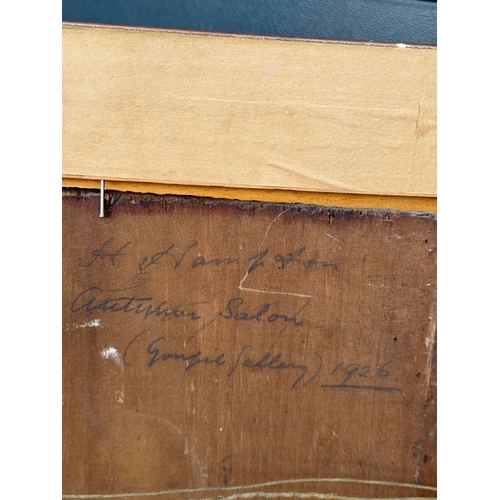 H. Hampton
Autumn Salon
(Goupil Gallery) 1926